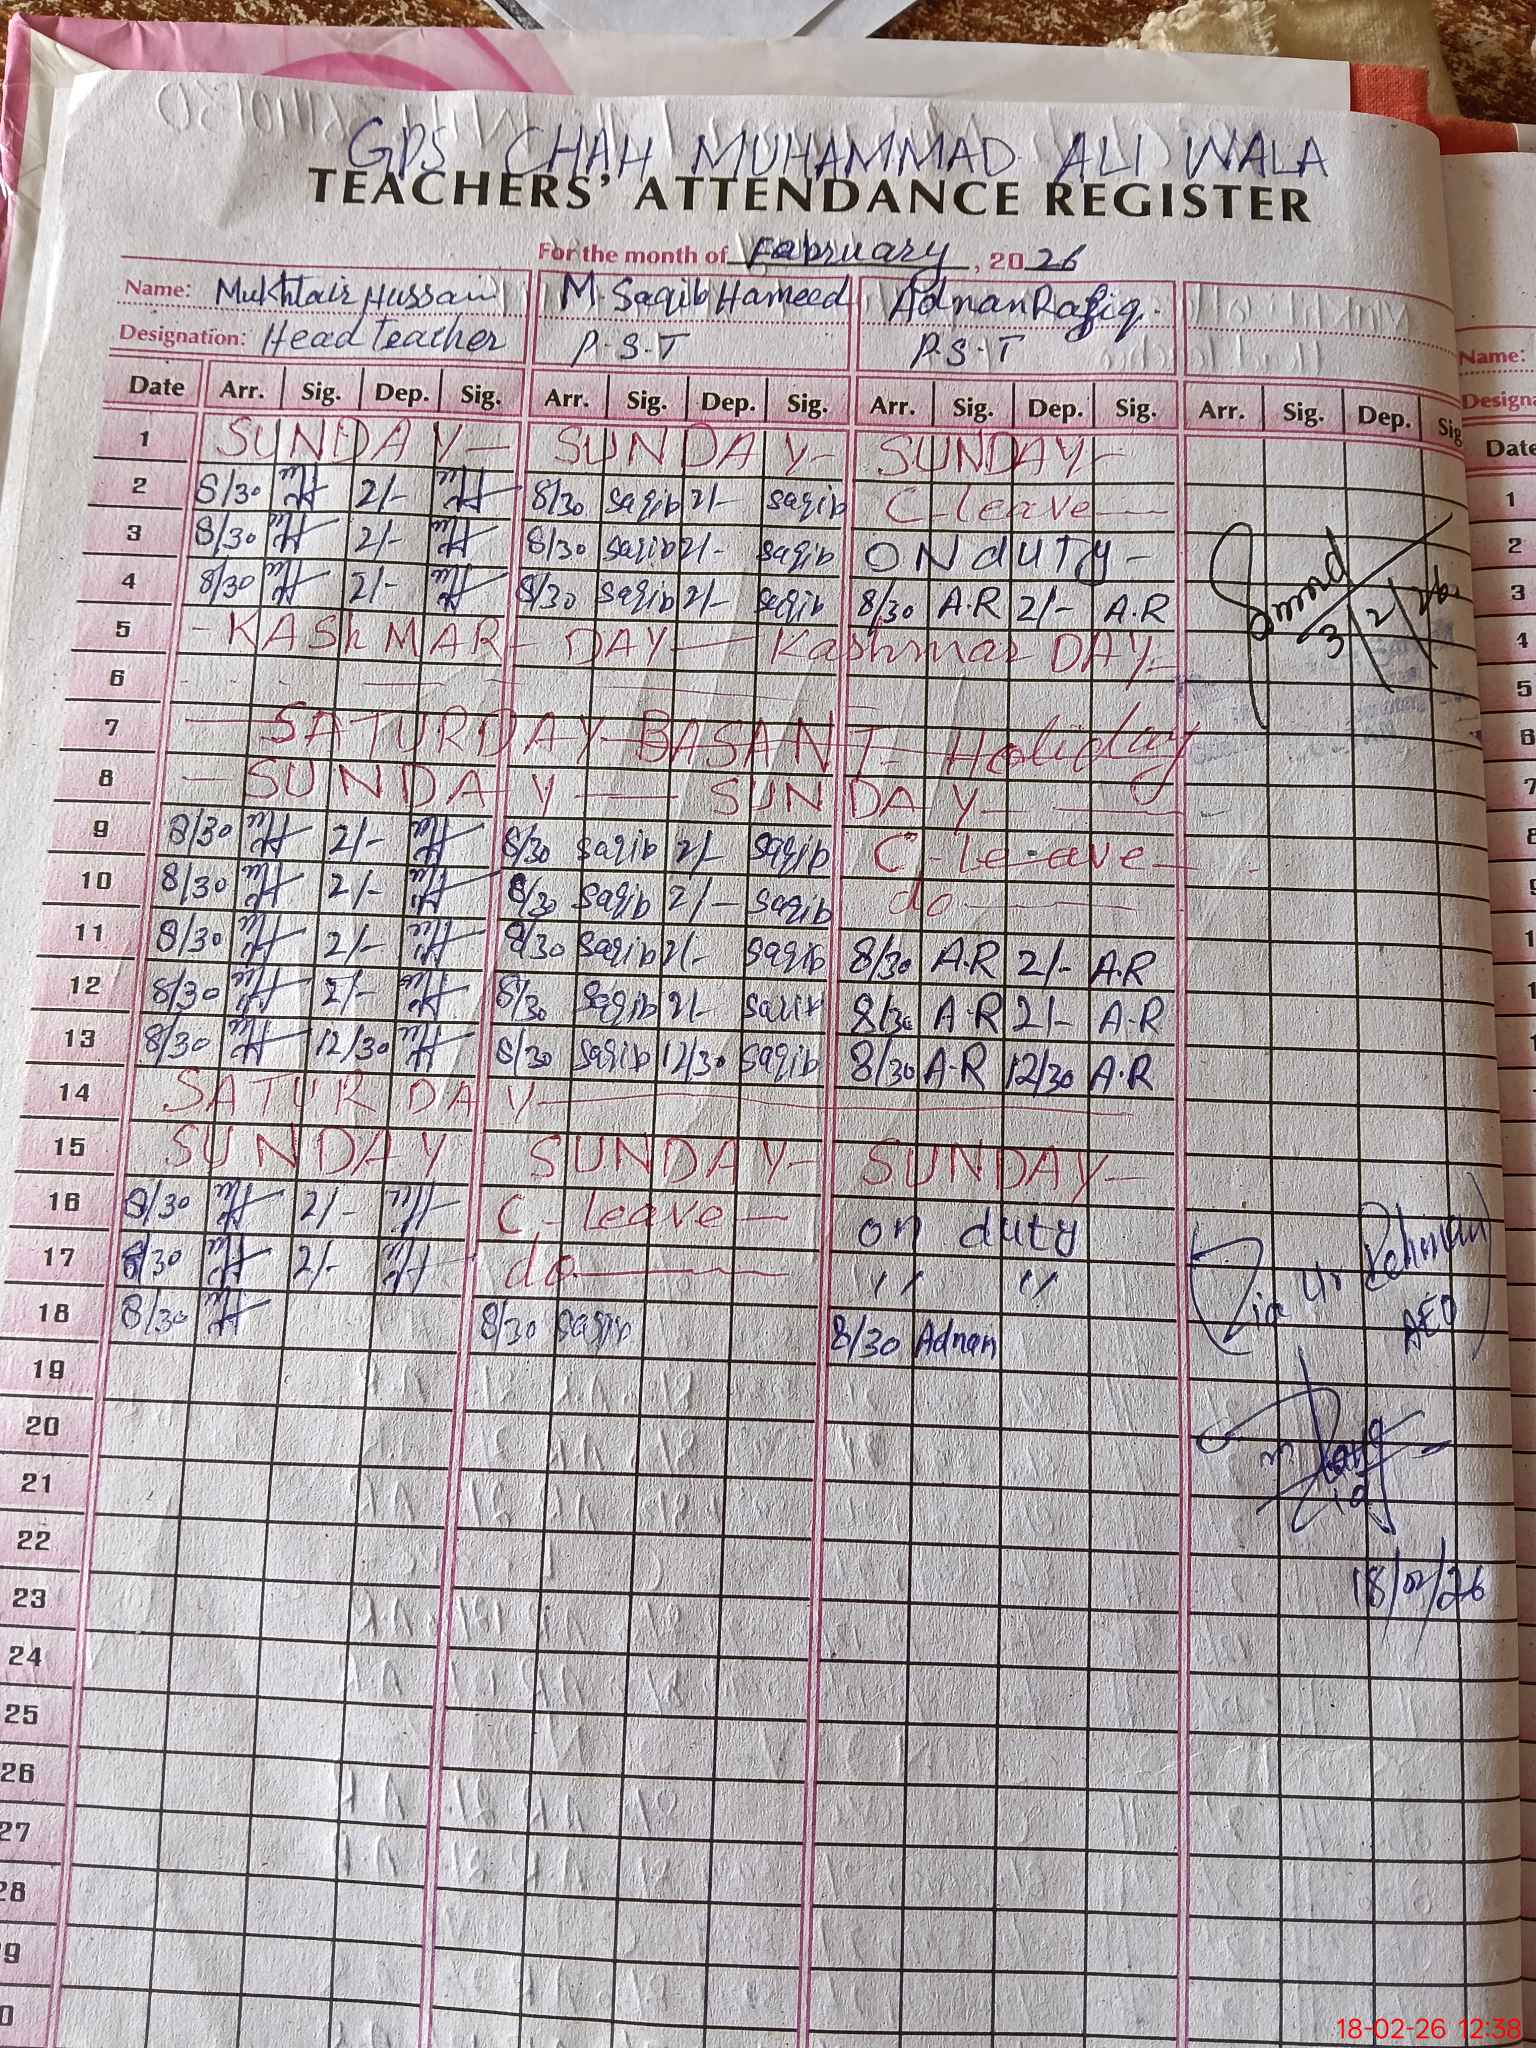 GPS CHAH MUHAMMAD ALI WALA
TEACHERS' ATTENDANCE REGISTER
For the month of February, 2026
Name: Mukhtair Hussain M. Saqib Hameed Adnan Rafiq.
Designation: Head Teacher P.S.T P.S.T
Date Arr. Sig. Dep. Sig. Arr. Sig. Dep. Sig. Arr. Sig. Dep. Sig. Arr. Sig. Dep. Sig
1 SUNDAY- SUNDAY- SUNDAY-
2 8/30 2/- 8/30 saqib 2/- saqib C-leave
3 8/30 2/- 8/30 saqib 2/- saqib ON dUTy-
4 8/30 2/- 8/30 saqib 2/- saqib 8/30 A.R 2/- A.R
5 -KAShMAR- DAY- Kashmar DAY-
6
7 SATURDAY-BASANT- Holiday
8 - SUNDAY - SUNDAY-
9 8/30 2/- 8/30 saqib 2/- saqib C-leave-
10 8/30 2/- 8/30 saqib 2/- saqib do
11 8/30 2/- 8/30 saqib 2/- saqib 8/30 A.R 2/- A.R
12 8/30 2/- 8/30 saqib 2/- saqib 8/30 A-R 2/- A-R
13 8/30 12/30 8/30 saqib 12/30 saqib 8/30 A-R 12/30 A.R
14 SATURDAY-
15 SUNDAY SUNDAY- SUNDAY-
16 8/30 2/- C-leave- on duty
17 8/30 2/- do " "
18 8/30 8/30 saqib 8/30 Adnan
Zia Ur Rehman
AEO
19
20
21
22
18/02/26
23
24
25
26
27
28
9
0
Name:
Designa
Date
1
2
3
4
5
6
7
8
9
1
1
1
1
18-02-26 12:38